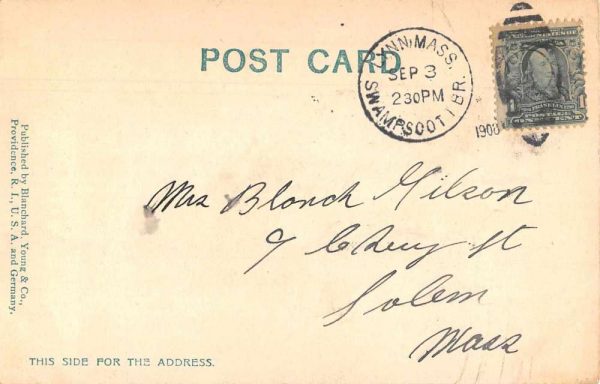 POST CARD
LYNN, MASS.
SEP 3
230PM
SWAMPSCOTT BR.
1
POSTAGE
ONE CENT
Published by Blanchard, Young & Co.,
Providence, R. I., U. S. A. and Germany.
Mrs Blanch Gilson
9 St
Salem
Mass
THIS SIDE FOR THE ADDRESS.